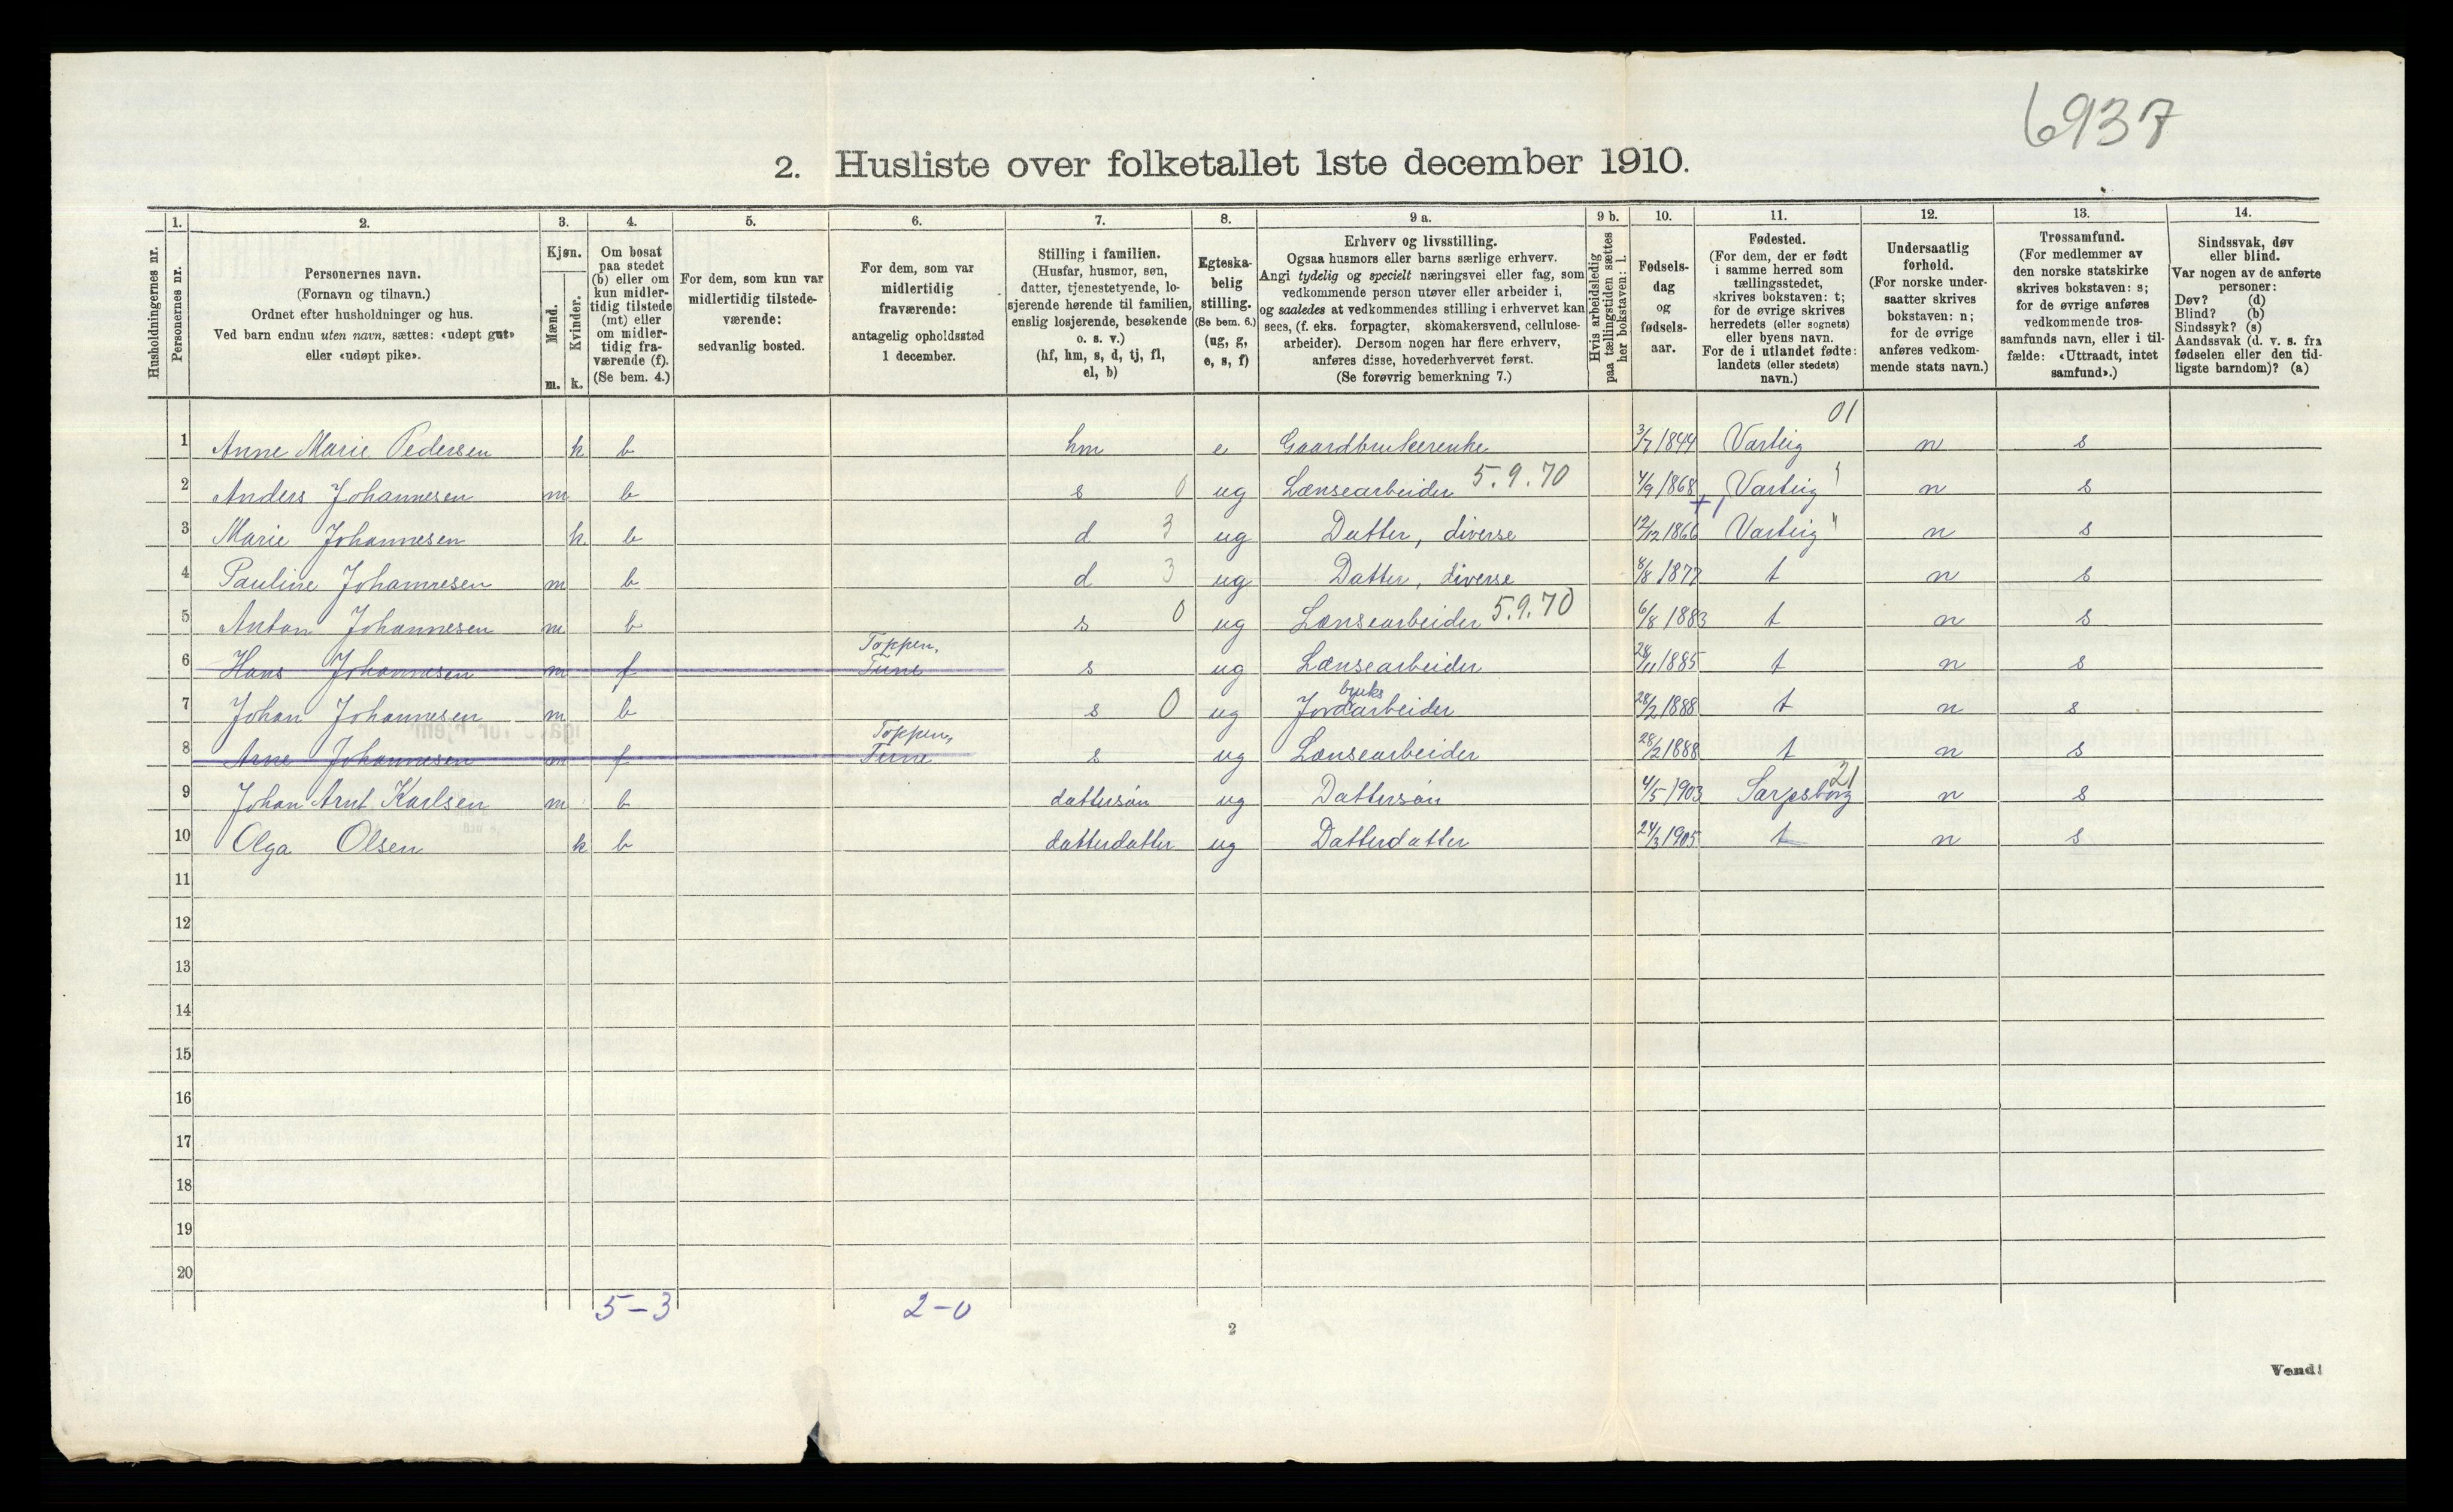 6937
2. Husliste over folketallet 1ste december 1910.
1. 2. 3. 4. 5. 6. 7. 8. 9 a. 9 b. 10. 11. 12. 13. 14.
Husholdningernes nr.
Personernes nr.
Personernes navn.
(Fornavn og tilnavn.)
Ordnet efter husholdninger og hus.
Ved barn endnu uten navn, sættes: «udøpt gut»
eller «udøpt pike».
Kjøn.
Mænd.
Kvinder.
m. k.
Om bosat
paa stedet
(b) eller om
kun midler-
tidig tilstede
(mt) eller
om midler-
tidig fra-
værende (f).
(Se bem. 4.)
For dem, som kun var
midlertidig tilstede-
værende:
sedvanlig bosted.
For dem, som var
midlertidig
fraværende:
antagelig opholdssted
1 december.
Stilling i familien.
(Husfar, husmor, søn,
datter, tjenestetyende, lo-
sjerende hørende til familien,
enslig losjerende, besøkende
o. s. v.)
(hf, hm, s, d, tj, fl,
el, b)
Egteska-
belig
stilling.
(Se bem. 6.)
(ug, g,
e, s, f)
Erhverv og livsstilling.
Ogsaa husmors eller barns særlige erhverv.
Angi tydelig og specielt næringsvei eller fag, som
vedkommende person utøver eller arbeider i,
og saaledes at vedkommendes stilling i erhvervet kan
sees, (f. eks. forpagter, skomakersvend, cellulose-
arbeider). Dersom nogen har flere erhverv,
anføres disse, hovederhvervet først.
(Se forøvrig bemerkning 7.)
Hvis arbeidsledig
paa tællingstiden sættes
her bokstaven: l.
Fødsels-
dag
og
fødsels-
aar.
Fødested.
(For dem, der er født
i samme herred som
tællingsstedet,
skrives bokstaven: t;
for de øvrige skrives
herredets (eller sognets)
eller byens navn.
For de i utlandet fødte:
landets (eller stedets)
navn.)
Undersaatlig
forhold.
(For norske under-
saatter skrives
bokstaven: n;
for de øvrige
anføres vedkom-
mende stats navn.)
Trossamfund.
(For medlemmer av
den norske statskirke
skrives bokstaven: s;
for de øvrige anføres
vedkommende tros-
samfunds navn, eller i til-
fælde: «Uttraadt, intet
samfund».)
Sindssvak, døv
eller blind.
Var nogen av de anførte
personer:
Døv? (d)
Blind? (b)
Sindssyk? (s)
Aandssvak (d. v. s. fra
fødselen eller den tid-
ligste barndom)? (a)
01
1 Anne Marie Pedersen k b hm e Gaardbrukerenke 3/7 1844 Varteig n s
2 Anders Johannesen m b s 0 ug Lænsearbeider 5.9.70 4/9 1868 Varteig " n s
3 Marie Johannesen k b d 3 ug Datter, diverse 12/12 1866 Varteig " n s
4 Pauline Johannesen m b d 3 ug Datter, diverse 8/8 1877 t n s
5 Anton Johannesen m b s 0 ug Lænsearbeider 5.9.70 6/8 1883 t n s
Toppen,
6 Hans Johannesen m f Tune s ug Lænsearbeider 28/11 1885 t n s
bruks
7 Johan Johannesen m b s 0 ug Jordarbeider 28/2 1888 t n s
Toppen,
8 Arne Johannesen m f Tune s ug Lænsearbeider 28/2 1888 t n s
21
9 Johan Arnt Karlsen m b dattersøn ug Dattersøn 4/5 1903 Sarpsborg n s
10 Olga Olsen k b datterdatter ug Datterdatter 24/3 1905 t n s
11
12
13
14
15
16
17
18
19
20
5-3 2-0
2
Vend!